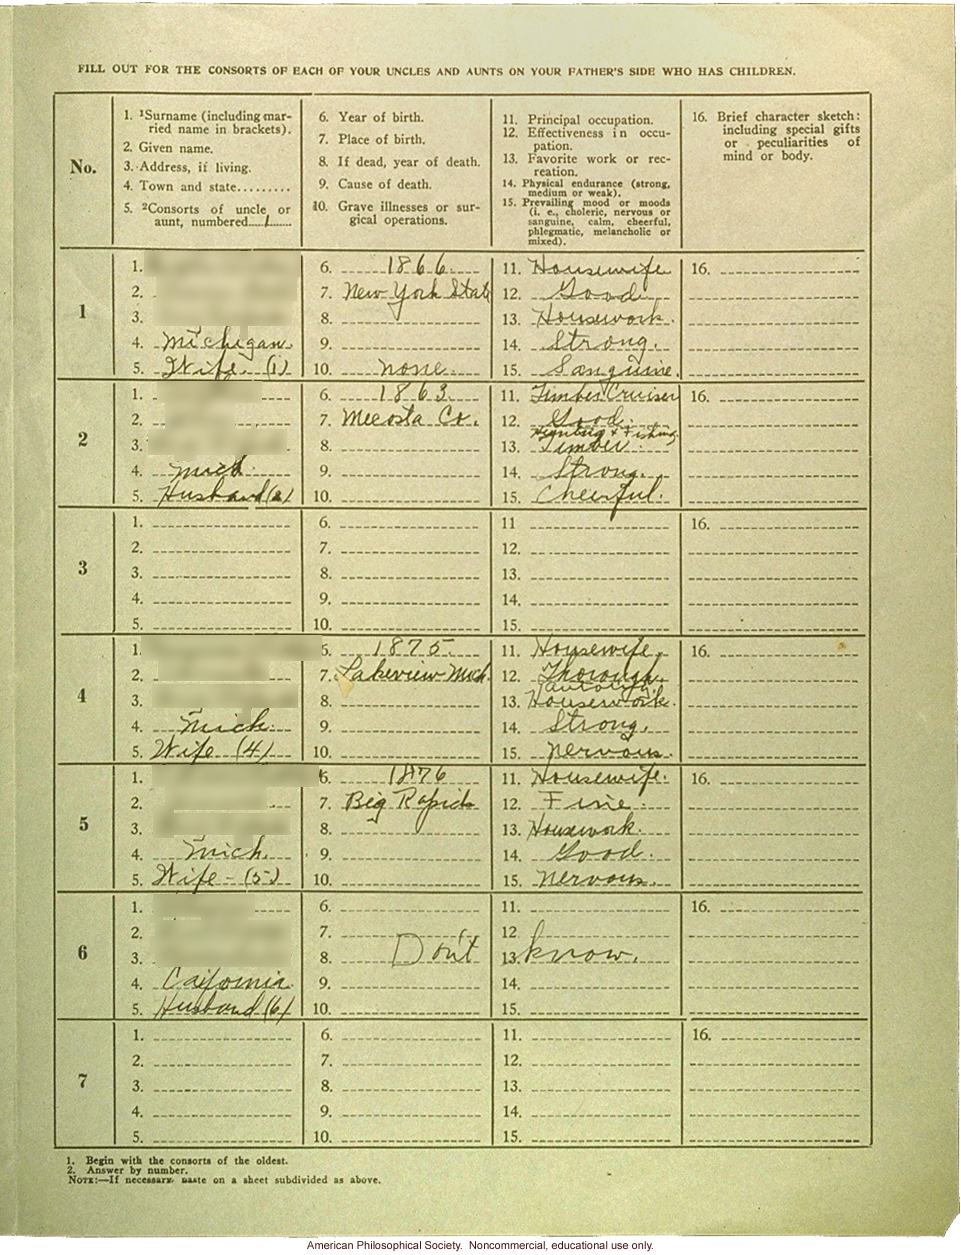 FILL OUT FOR THE CONSORTS OF EACH OF YOUR UNCLES AND AUNTS ON YOUR FATHER'S SIDE WHO HAS CHILDREN.
No.
1. ¹Surname (including married name in brackets).
2. Given name.
3. Address, if living.
4. Town and state.........
5. ²Consorts of uncle or aunt, numbered....1......
6. Year of birth.
7. Place of birth.
8. If dead, year of death.
9. Cause of death.
10. Grave illnesses or surgical operations.
11. Principal occupation.
12. Effectiveness in occupation.
13. Favorite work or recreation.
14. Physical endurance (strong, medium or weak).
15. Prevailing mood or moods (i. e., choleric, nervous or sanguine, calm, cheerful, phlegmatic, melancholic or mixed).
16. Brief character sketch: including special gifts or peculiarities of mind or body.
1
1.
2.
3.
4. Michigan.
5. Wife. (1)
6. 1866.
7. New York State
8.
9.
10. none.
11. Housewife
12. Good.
13. Housework.
14. Strong.
15. Sanguine.
16.
2
1.
2.
3.
4. Mich.
5. Husband (2)
6. 1863.
7. Mecosta Co.
8.
9.
10.
11. Timber Cruiser
12. Good.
Hunting & Fishing.
13. Timber.
14. Strong.
15. Cheerful.
16.
3
1.
2.
3.
4.
5.
6.
7.
8.
9.
10.
11
12.
13.
14.
15.
16.
4
1.
2.
3.
4. Mich.
5. Wife (4)
6. 1875.
7. Lakeview Mich.
8.
9.
10.
11. Housewife.
12. Thorough.
13. Housework.
14. Strong.
15. Nervous.
16.
5
1.
2.
3.
4. Mich.
5. Wife - (5)
6. 1876
7. Big Rapids
8.
9.
10.
11. Housewife.
12. Fine.
13. Housework.
14. Good.
15. Nervous.
16.
6
1.
2.
3.
4. California.
5. Husband (6)
6.
7.
8. Don't
9.
10.
11.
12
13. know.
14.
15.
16.
7
1.
2.
3.
4.
5.
6.
7.
8.
9.
10.
11.
12.
13.
14.
15.
16.
1. Begin with the consorts of the oldest.
2. Answer by number.
NOTE:—If necessary paste on a sheet subdivided as above.
American Philosophical Society. Noncommercial, educational use only.